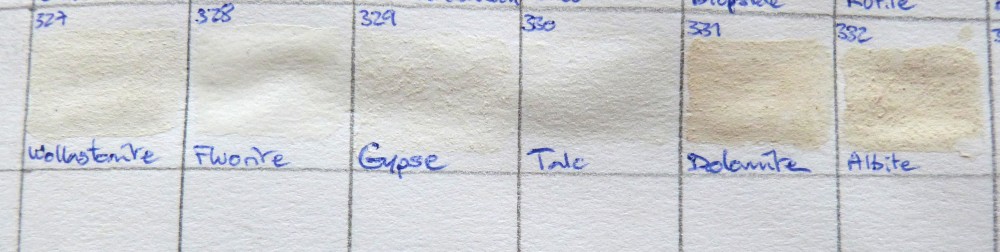 Diopside Rutile
327 328 329 330 331 332
Wollastonite Fluorite Gypse Talc Dolomite Albite